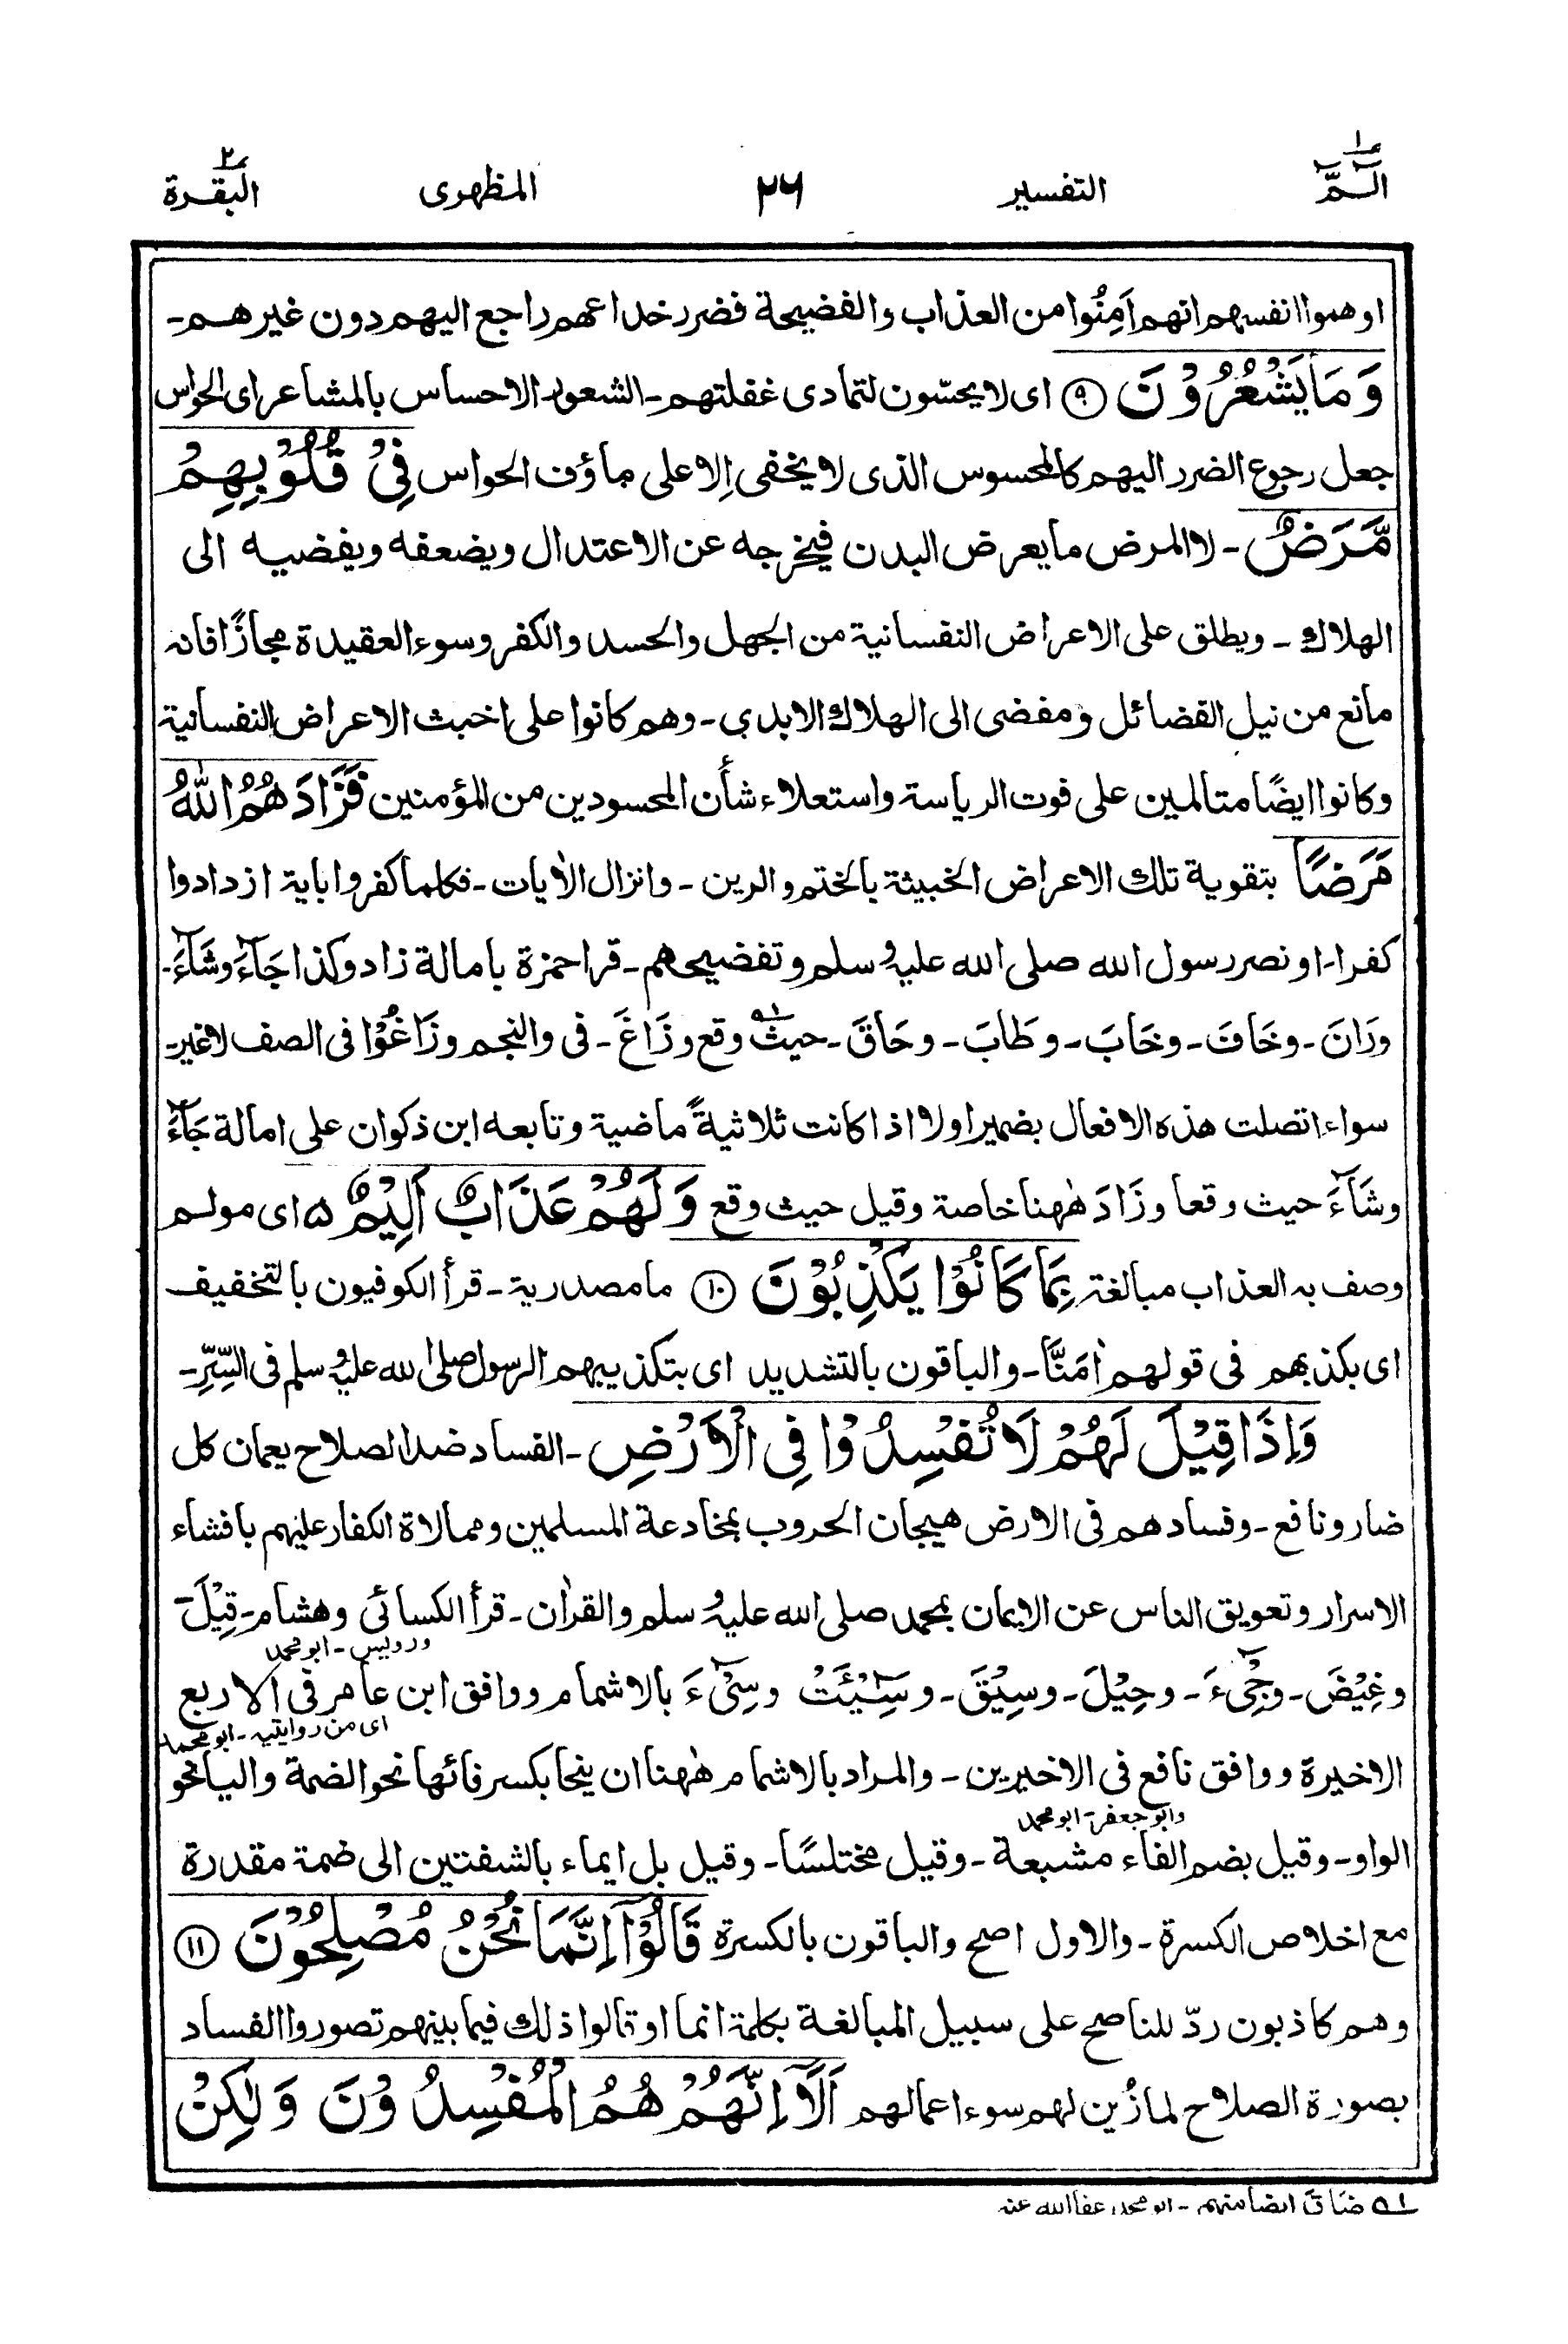 الٓمّٓ ۱ التفسير ۲۶ المظهرى البقرة ۲
اوهموا انفسهم انهم اَمِنُوا من العذاب والفضيحة فضرر خداعهم راجع اليهم دون غيرهم-
وَمَا يَشْعُرُوْنَ ۹ اى لا يحسّون لتمادى غفلتهم- الشعور الاحساس بالمشاعر اى الحواس
جعل رجوع الضرر اليهم كالمحسوس الذى لا يخفى اِلا على مأوٗف الحواس فِىْ قُلُوْبِهِمْ
مَّرَضٌ- لا المرض ما يعرض البدن فيخرجه عن الاعتدال ويضعفه ويفضيه الى
الهلاك- ويطلق على الاعراض النفسانية من الجهل والحسد والكفر وسوء العقيدة مجازًا فانه
مانع من نيل القضائل ومفضى الى الهلاك الابدي- وهم كانوا على اخبث الاعراض النفسانية
وكانوا ايضًا متالمين على فوت الرياسة واستعلاء شأن المحسودين من المؤمنين فَزَادَهُمُ اللّٰهُ
مَرَضًا بتقوية تلك الاعراض الخبيثة بالختم والرين- وانزال الاٰيات- فكلما كفروا باية ازدادوا
كفرا- او نصر رسول الله صلى الله عليه وسلم وتفضيحهم- قرا حمزة بامالة زاد وكذا جَآءَ وشَآءَ-
ورَانَ- وخَافَ- وخَابَ- وطَابَ- وحَاقَ- حيث وقع وزَاغَ- فى والنجم وزَاغُوْا فى الصف لا غير-
سواء اتصلت هذه الافعال بضمير اولا اذا كانت ثلاثيةً ماضية وتابعه ابن ذكوان على امالة جَآءَ
وشَآءَ حيث وقعا وزَادَ هٰهنا خاصة وقيل حيث وقع وَلَهُمْ عَذَابٌ اَلِيْمٌ ۵ اى مولم
وصف به العذاب مبالغة بِمَا كَانُوْا يَكْذِبُوْنَ ۱۰ ما مصدرية- قرأ الكوفيون بالتخفيف
اى بكذبهم فى قولهم اٰمَنَّا- والباقون بالتشديد اى بتكذيبهم الرسول صلى الله عليه وسلم فى السِّرِّ-
وَاِذَا قِيْلَ لَهُمْ لَا تُفْسِدُوْا فِى الْاَرْضِ- الفساد ضد الصلاح يعمان كل
ضار ونافع- وفسادهم فى الارض هيجان الحروب بمخادعة المسلمين وممالاة الكفار عليهم بافشاء
الاسرار وتعويق الناس عن الايمان بمحمد صلى الله عليه وسلم والقراٰن- قرأ الكسائى وهشام- قِيْلَ-
ورويس- ابو محمد
وغِيْضَ- وجِىْٓءَ- وحِيْلَ- وسِيْقَ- وسِيْٓئَتْ وسِىْٓءَ بالاشمام ووافق ابن عامر فى الاربع
اى من روايتيه- ابو محمد
الاخيرة ووافق نافع فى الاخيرين- والمراد بالاشمام هٰهنا ان ينحا بكسر فائها نحو الضمة والياء نحو
وابو جعفر- ابو محمد
الواو- وقيل بضم الفاء مشبعة- وقيل مختلسًا- وقيل بل ايماء بالشفتين الى ضمة مقدرة
مع اخلاص الكسرة- والاول اصح والباقون بالكسرة قَالُوْٓا اِنَّمَا نَحْنُ مُصْلِحُوْنَ ۱۱
وهم كاذبون ردّ للناصح على سبيل المبالغة بكلمة انما او قالوا ذلك فيما بينهم تصوروا الفساد
بصورة الصلاح لما زُين لهم سوء اعمالهم اَلَآ اِنَّهُمْ هُمُ الْمُفْسِدُوْنَ وَلٰكِنْ
۱؎ ضَاقَ ايضا منهم- ابو محمد عفا الله عنه